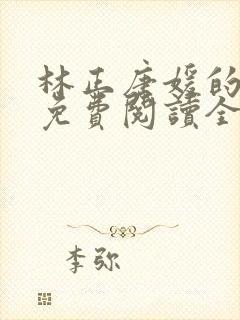 林正唐媛的
免費閱讀全
李弥